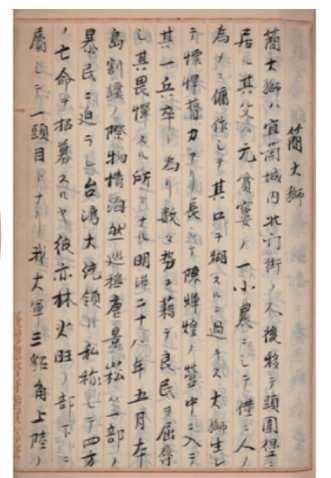 簡大獅
簡大獅ハ宜蘭城内北門街ノ人後移テ頭圍堡ニ
居ル其父ハ元貧窶ノ一小農ニシテ僅ニ人ノ
為メニ傭作シテ其口ヲ糊スルニ過キス大獅生レ
テ慓悍膂力アリ長シテ陳輝煌ノ営中ニ入テ
其一兵卒ト為リ数々勢ヲ藉テ良民ヲ屈辱
シ其畏憚スル所トナル明治二十八年五月本
島割譲ノ際物情洶然巡撫唐景崧ハ一部ノ
暴民ニ迫ラレ台湾大統領ト私称シテ四方
ノ亡命ヲ招募スルヤ彼亦林火旺ノ部下ニ
属シテ一頭目トナル我大軍三貂角上陸ノ